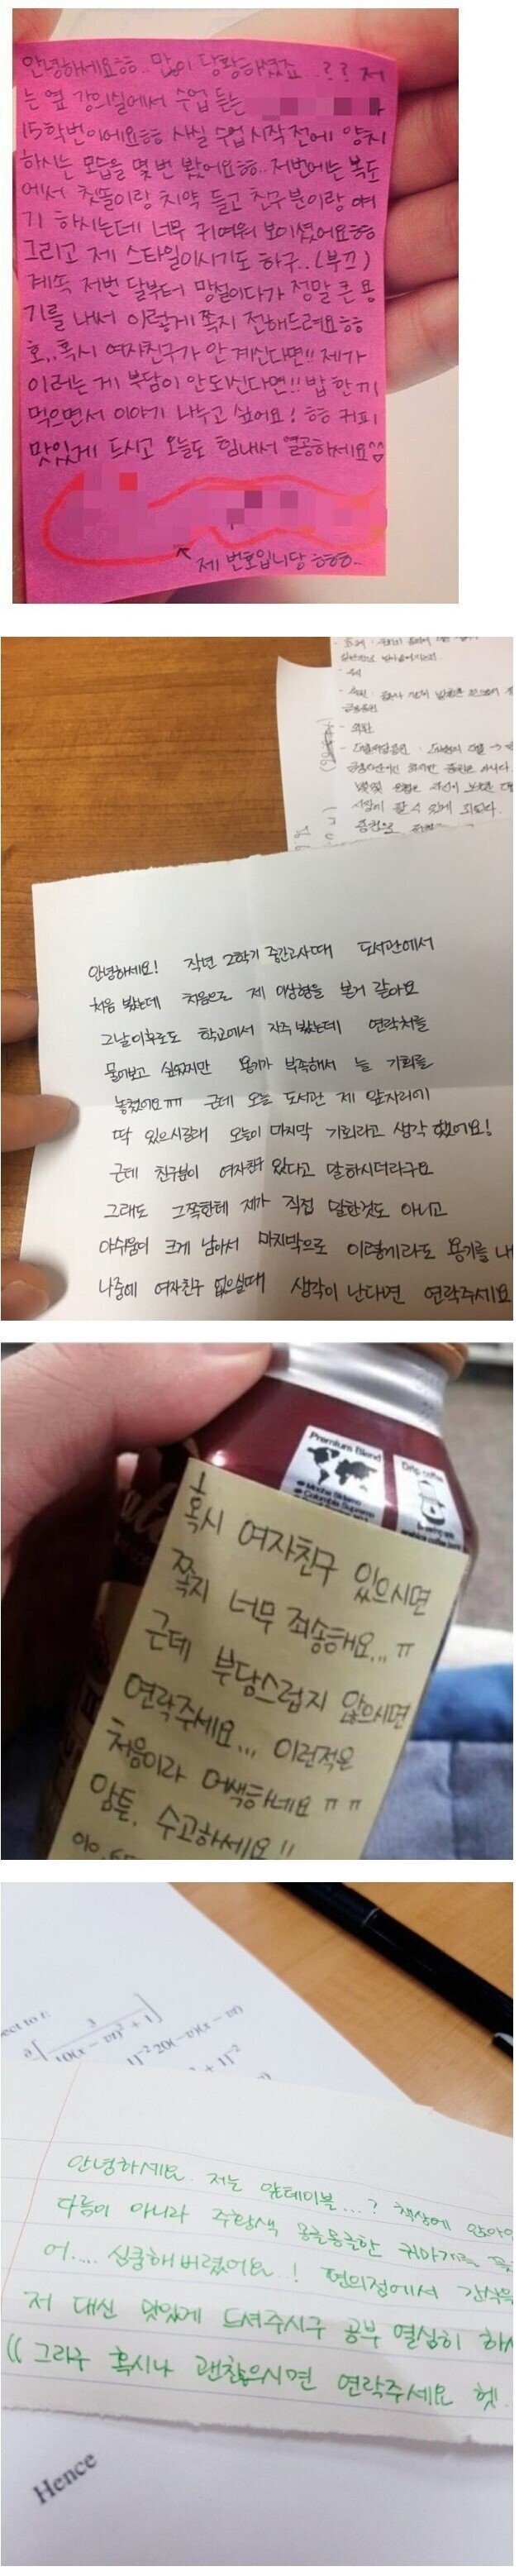 안녕하세요ㅎㅎ.. 많이 당황하셨죠..?? 저
는 옆 강의실에서 수업 듣는
15학번이에요ㅎㅎ 사실 수업 시작 전에 양치
하시는 모습을 몇번 봤어요ㅎㅎ.. 저번에는 복도
에서 칫똘이랑 치약 들고 친구분이랑 얘
기 하시는데 너무 귀여워 보이셨어요ㅎㅎ
그리고 제 스타일이시기도 하구..(부끄)
계속 저번 달부터 망설이다가 정말 큰 용
기를 내서 이렇게 쪽지 전해드려요ㅎㅎ
호,.혹시 여자친구가 안 계신다면!! 제가
이러는 게 부담이 안되신다면!! 밥 한끼
먹으면서 이야기 나누고 싶어요! ㅎㅎ 커피
맛있게 드시고 오늘도 힘내서 열공하세요^^
제 번호입니당 ㅎㅎㅎ..
안녕하세요! 작년 2학기 중간고사때 도서관에서
처음 봤는데 처음으로 제 이상형을 본거 같아요
그날이후로도 학교에서 자주 봤는데 연락처를
물어보고 싶었지만 용기가 부족해서 늘 기회를
놓쳤어요ㅠㅠ 근데 오늘 도서관 제 앞자리에
딱 있으시길래 오늘이 마지막 기회라고 생각 했어요!
근데 친구분이 여자친구 있다고 말하시더라구요
그래도 그쪽한테 제가 직접 말한것도 아니고
아쉬움이 크게 남아서 마지막으로 이렇게라도 용기를 내
나중에 여자친구 없으실때 생각이 난다면 연락주세요
Premium Blend
Drip coffee
혹시 여자친구 있으시면
쪽지 너무 죄송해요... ㅠ
근데 부담스럽지 않으시면
연락주세요... 이런적은
처음이라 어색하네요 ㅠㅠ
암튼, 수고하세요!!
010.
ect to t:
3
10(x − vt)² + 1
]⁻² 20(−v)(x − vt)
+ 1]⁻²
안녕하세요. 저는 앞테이블...? 책상에 앉아있
다름이 아니라 주황색 몽글몽글한 귀마개를 꽂
어.... 심쿵해버렸어요..! 편의점에서 간식을
저 대신 맛있게 드셔주시구 공부 열심히 하시
(( 그리구 혹시나 괜찮으시면 연락주세요 헷!
Hence